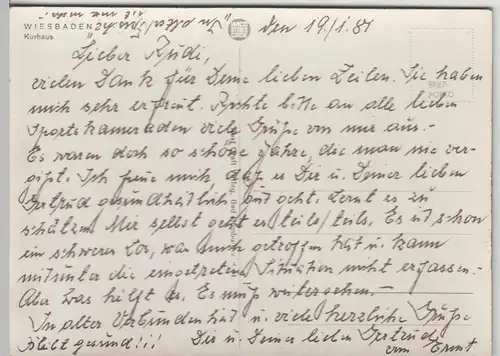 WIESBADEN
Kurhaus
den 19/1.81
Lieber Rudi,
vielen Dank für Deine lieben Zeilen. Sie haben
mich sehr erfreut. Richte bitte an alle lieben
Sportskameraden viele Grüße von mir aus.-
Es waren doch so schöne Jahre, die man nie ver-
gißt. Ich freue mich daß es Dir u. Deiner lieben
Gertrud gesundheitlich gut geht. Lernt es zu
schätzen. Mir selbst geht es teils/teils. Es ist schon
ein schweres Los, was mich getroffen hat u. kann
mitunter die eingetretene Situation nicht erfassen.-
Aber was hilft es. Es muß weitergehen.-
In alter Verbundenheit u. viele herzliche Grüße
Bleibt gesund!!! Dir u. Deiner lieben Gertrud
von Ernst